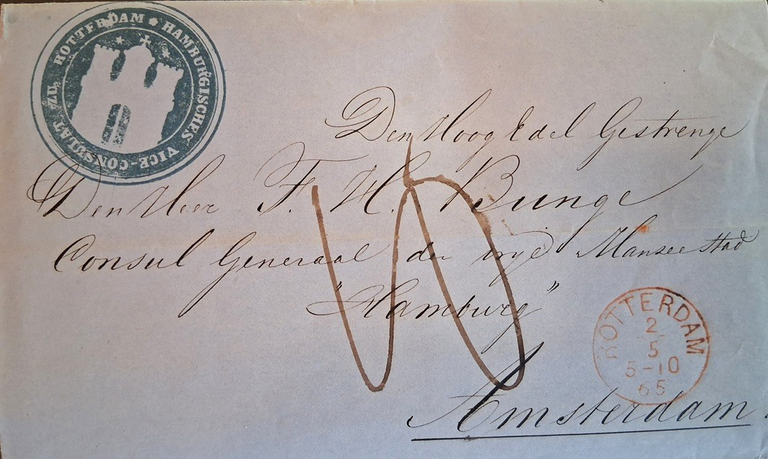 HAMBURGISCHES VICE-CONSULAT ZU ROTTERDAM
Den Hoog Edel Gestrenge
Den Heer F. H. Bunge
Consul Generaal der vrye Hanseestad
"Hamburg"
ROTTERDAM
2
5
5-10
65
Amsterdam